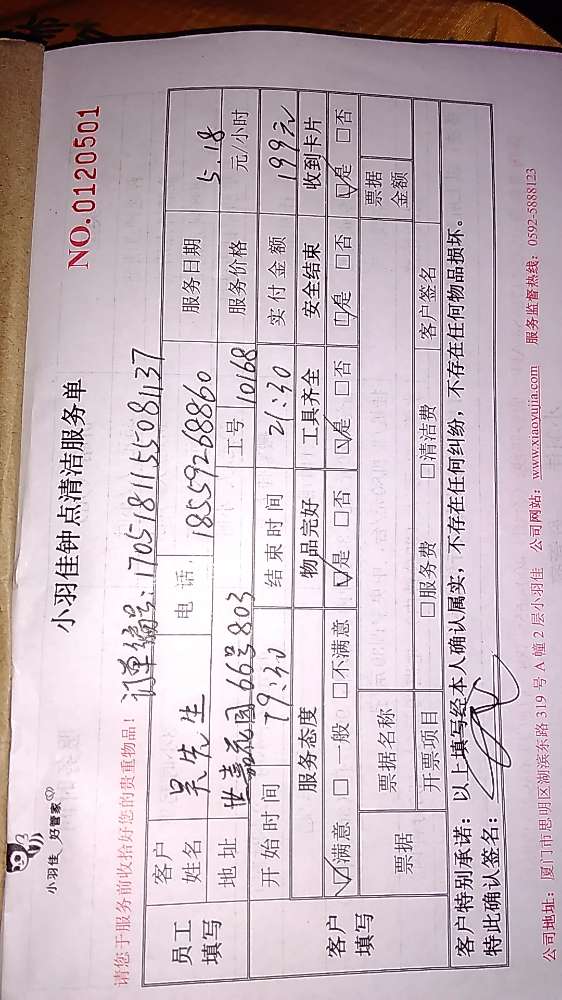 小羽佳 好管家
小羽佳钟点清洁服务单
NO.0120501
请您于服务前收拾好您的贵重物品！ 订单编号：1705181155081137
员工填写 客户姓名 吴先生 电话 18559268860 服务日期 5.18
地址 世嘉花园66号803 工号 10168 服务价格 元/小时
客户填写 开始时间 19:30 结束时间 21:30 实付金额 199元
服务态度 物品完好 工具齐全 安全结束 收到卡片
☑满意 □一般 □不满意 ☑是 □否 ☑是 □否 ☑是 □否 ☑是 □否
票据 票据名称 票据金额
开票项目 □服务费 □清洁费 客户签名
客户特别承诺：以上填写经本人确认属实，不存在任何纠纷，不存在任何物品损坏。
特此确认签名：
公司地址：厦门市思明区湖滨东路319号A幢2层小羽佳 公司网站：www.xiaoyujia.com 服务监督热线：0592-5888123